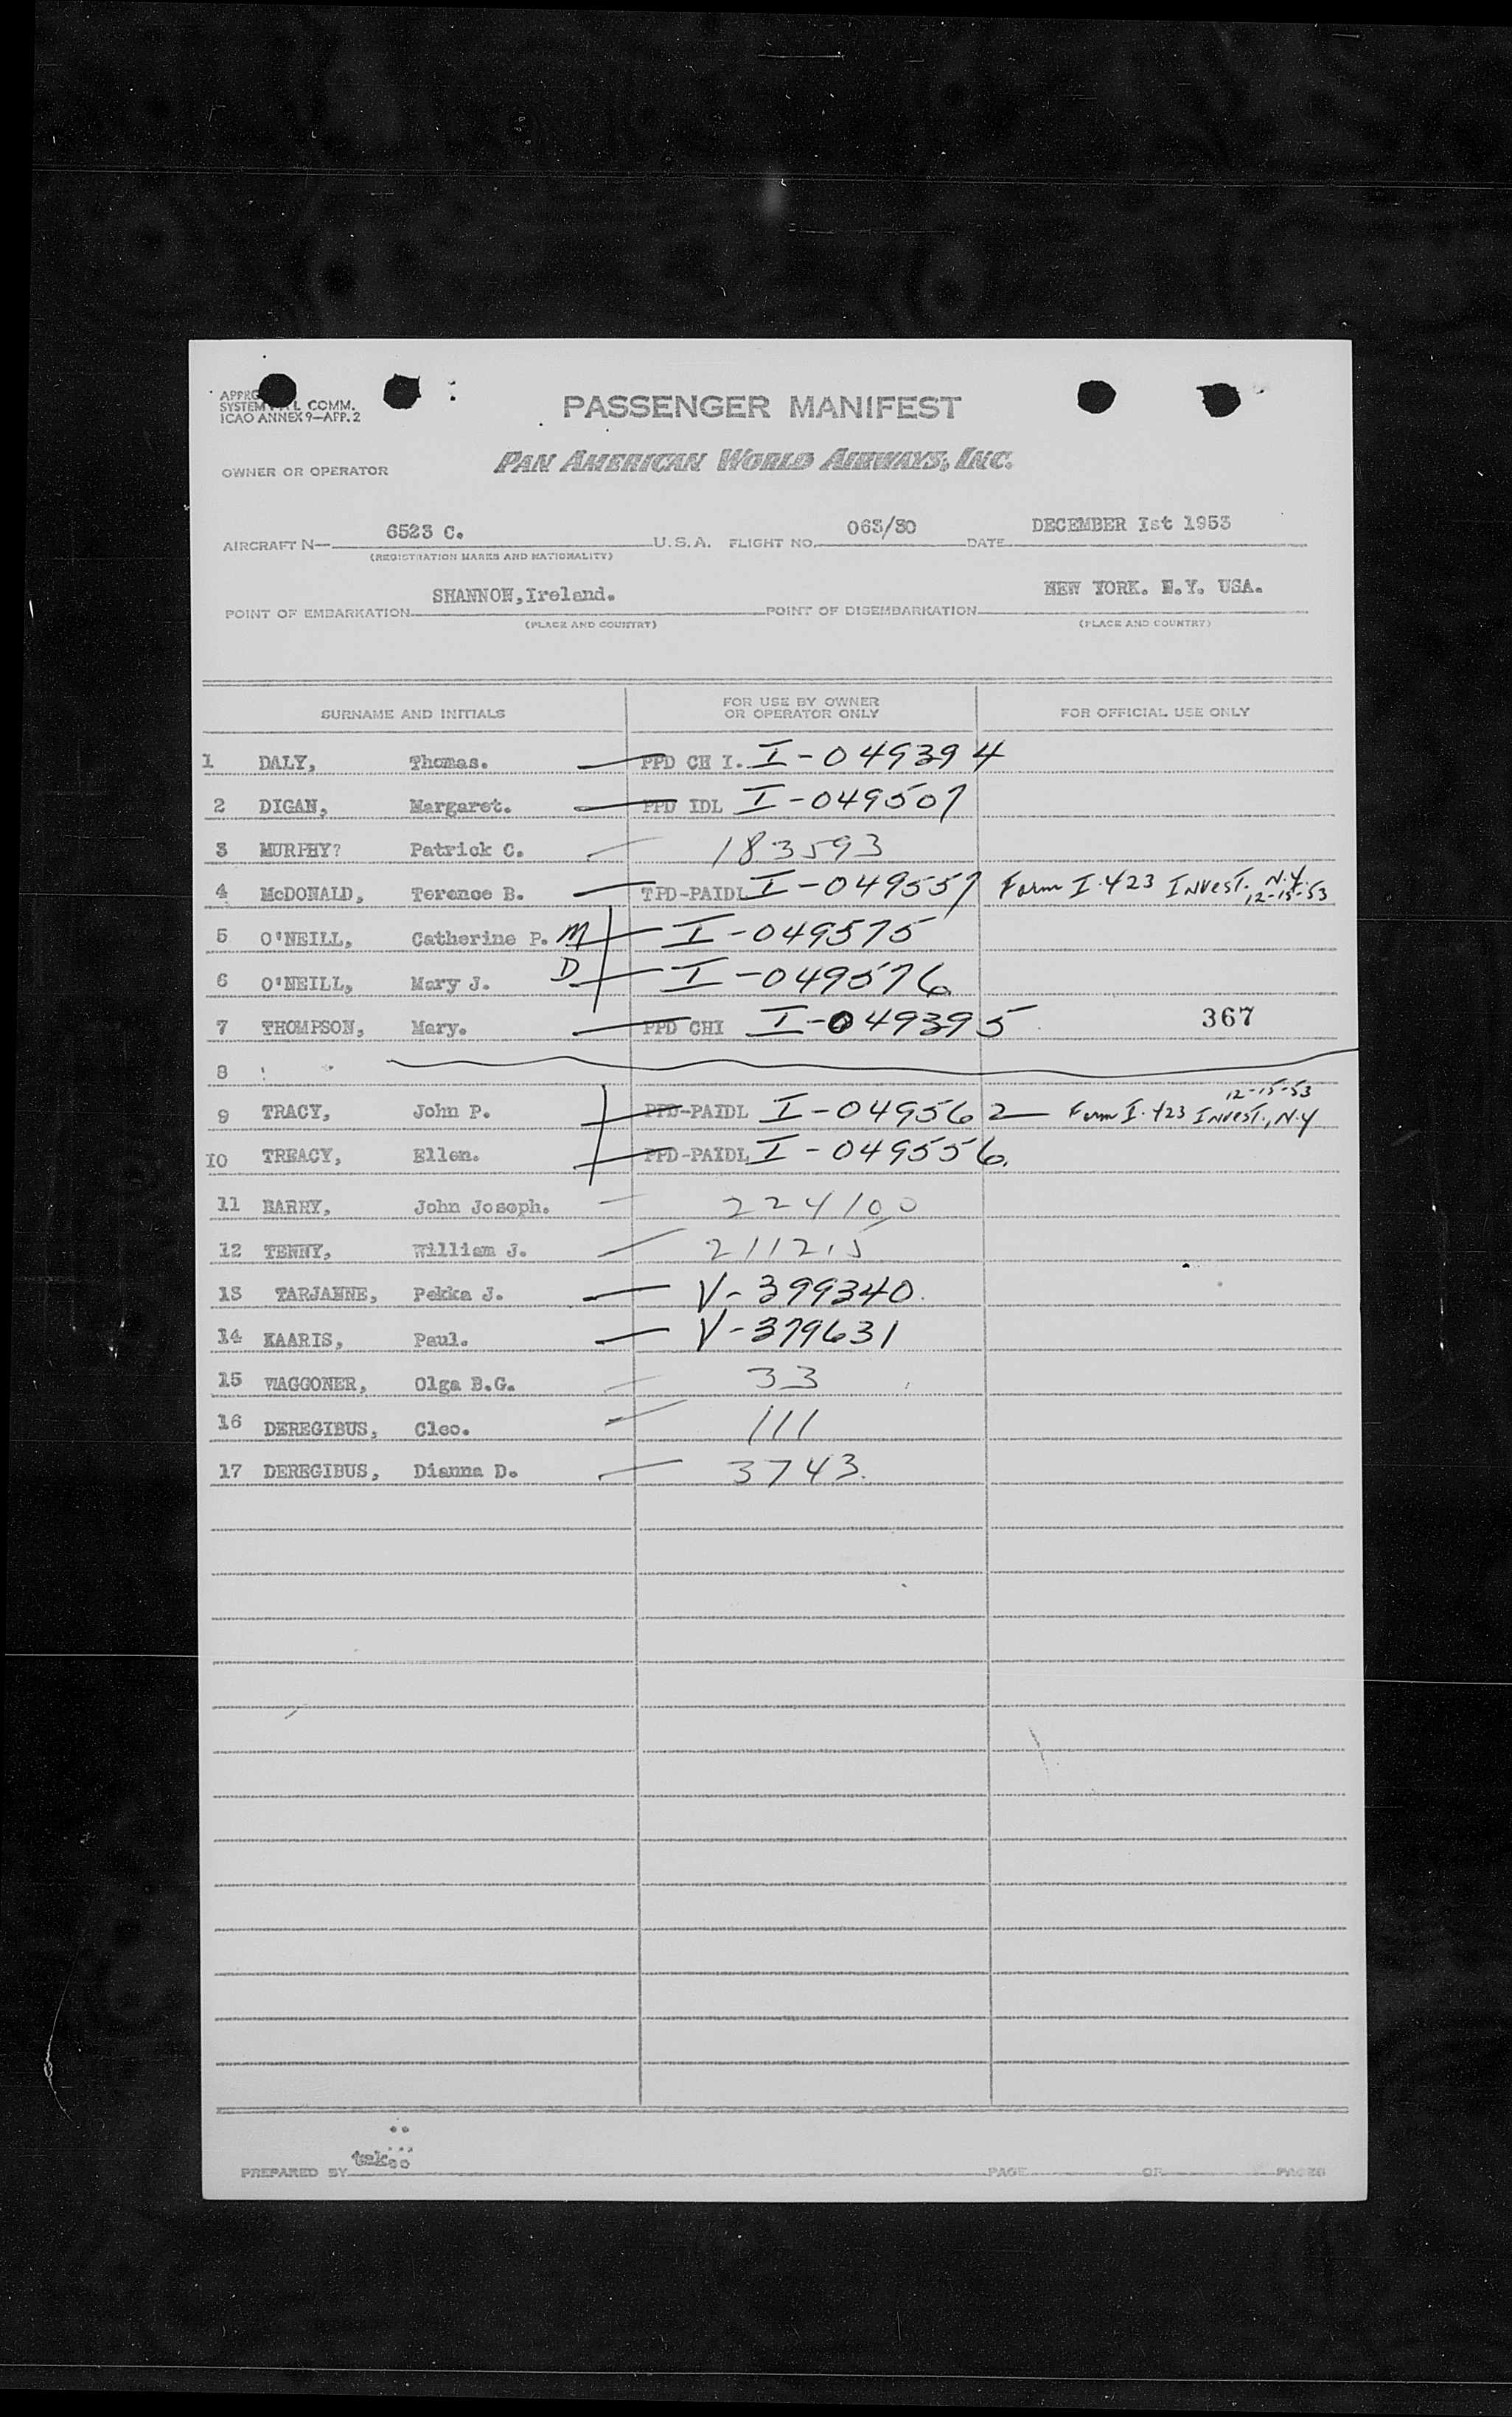 PASSENGER MANIFEST
SYSTEM L COMM.
ICAO ANNEX 9—APP. 2
OWNER OR OPERATOR PAN AMERICAN WORLD AIRWAYS, INC.
AIRCRAFT N— 6523 C. U.S.A. FLIGHT NO. 063/30 DATE DECEMBER Ist 1953
(REGISTRATION MARKS AND NATIONALITY)
POINT OF EMBARKATION SHANNON,Ireland. POINT OF DISEMBARKATION NEW YORK. N.Y. USA.
(PLACE AND COUNTRY) (PLACE AND COUNTRY)
SURNAME AND INITIALS FOR USE BY OWNER OR OPERATOR ONLY FOR OFFICIAL USE ONLY
1 DALY, Thomas. PPD CH I. I-049394
2 DIGAN, Margaret. PPD IDL I-049507
3 MURPHY? Patrick C. 183593
4 McDONALD, Terence B. TPD-PAIDL I-049557 Form I-423 INVEST. N.Y. 12-15-53
5 O'NEILL, Catherine P. M I-049575
6 O'NEILL, Mary J. D I-049576
7 THOMPSON, Mary. PPD CHI I-049395 367
8
9 TRACY, John P. PPD-PAIDL I-049562 Form I-423 INVEST., N.Y 12-15-53
10 TREACY, Ellen. PPD-PAIDL I-049556.
11 BARRY, John Joseph. 224100
12 TENNY, William J. 211215
13 TARJANNE, Pekka J. V-399340.
14 KAARIS, Paul. V-379631
15 WAGGONER, Olga B.G. 33
16 DEREGIBUS, Cleo. 111
17 DEREGIBUS, Dianna D. 3743.
PREPARED BY PAGE OF PAGES